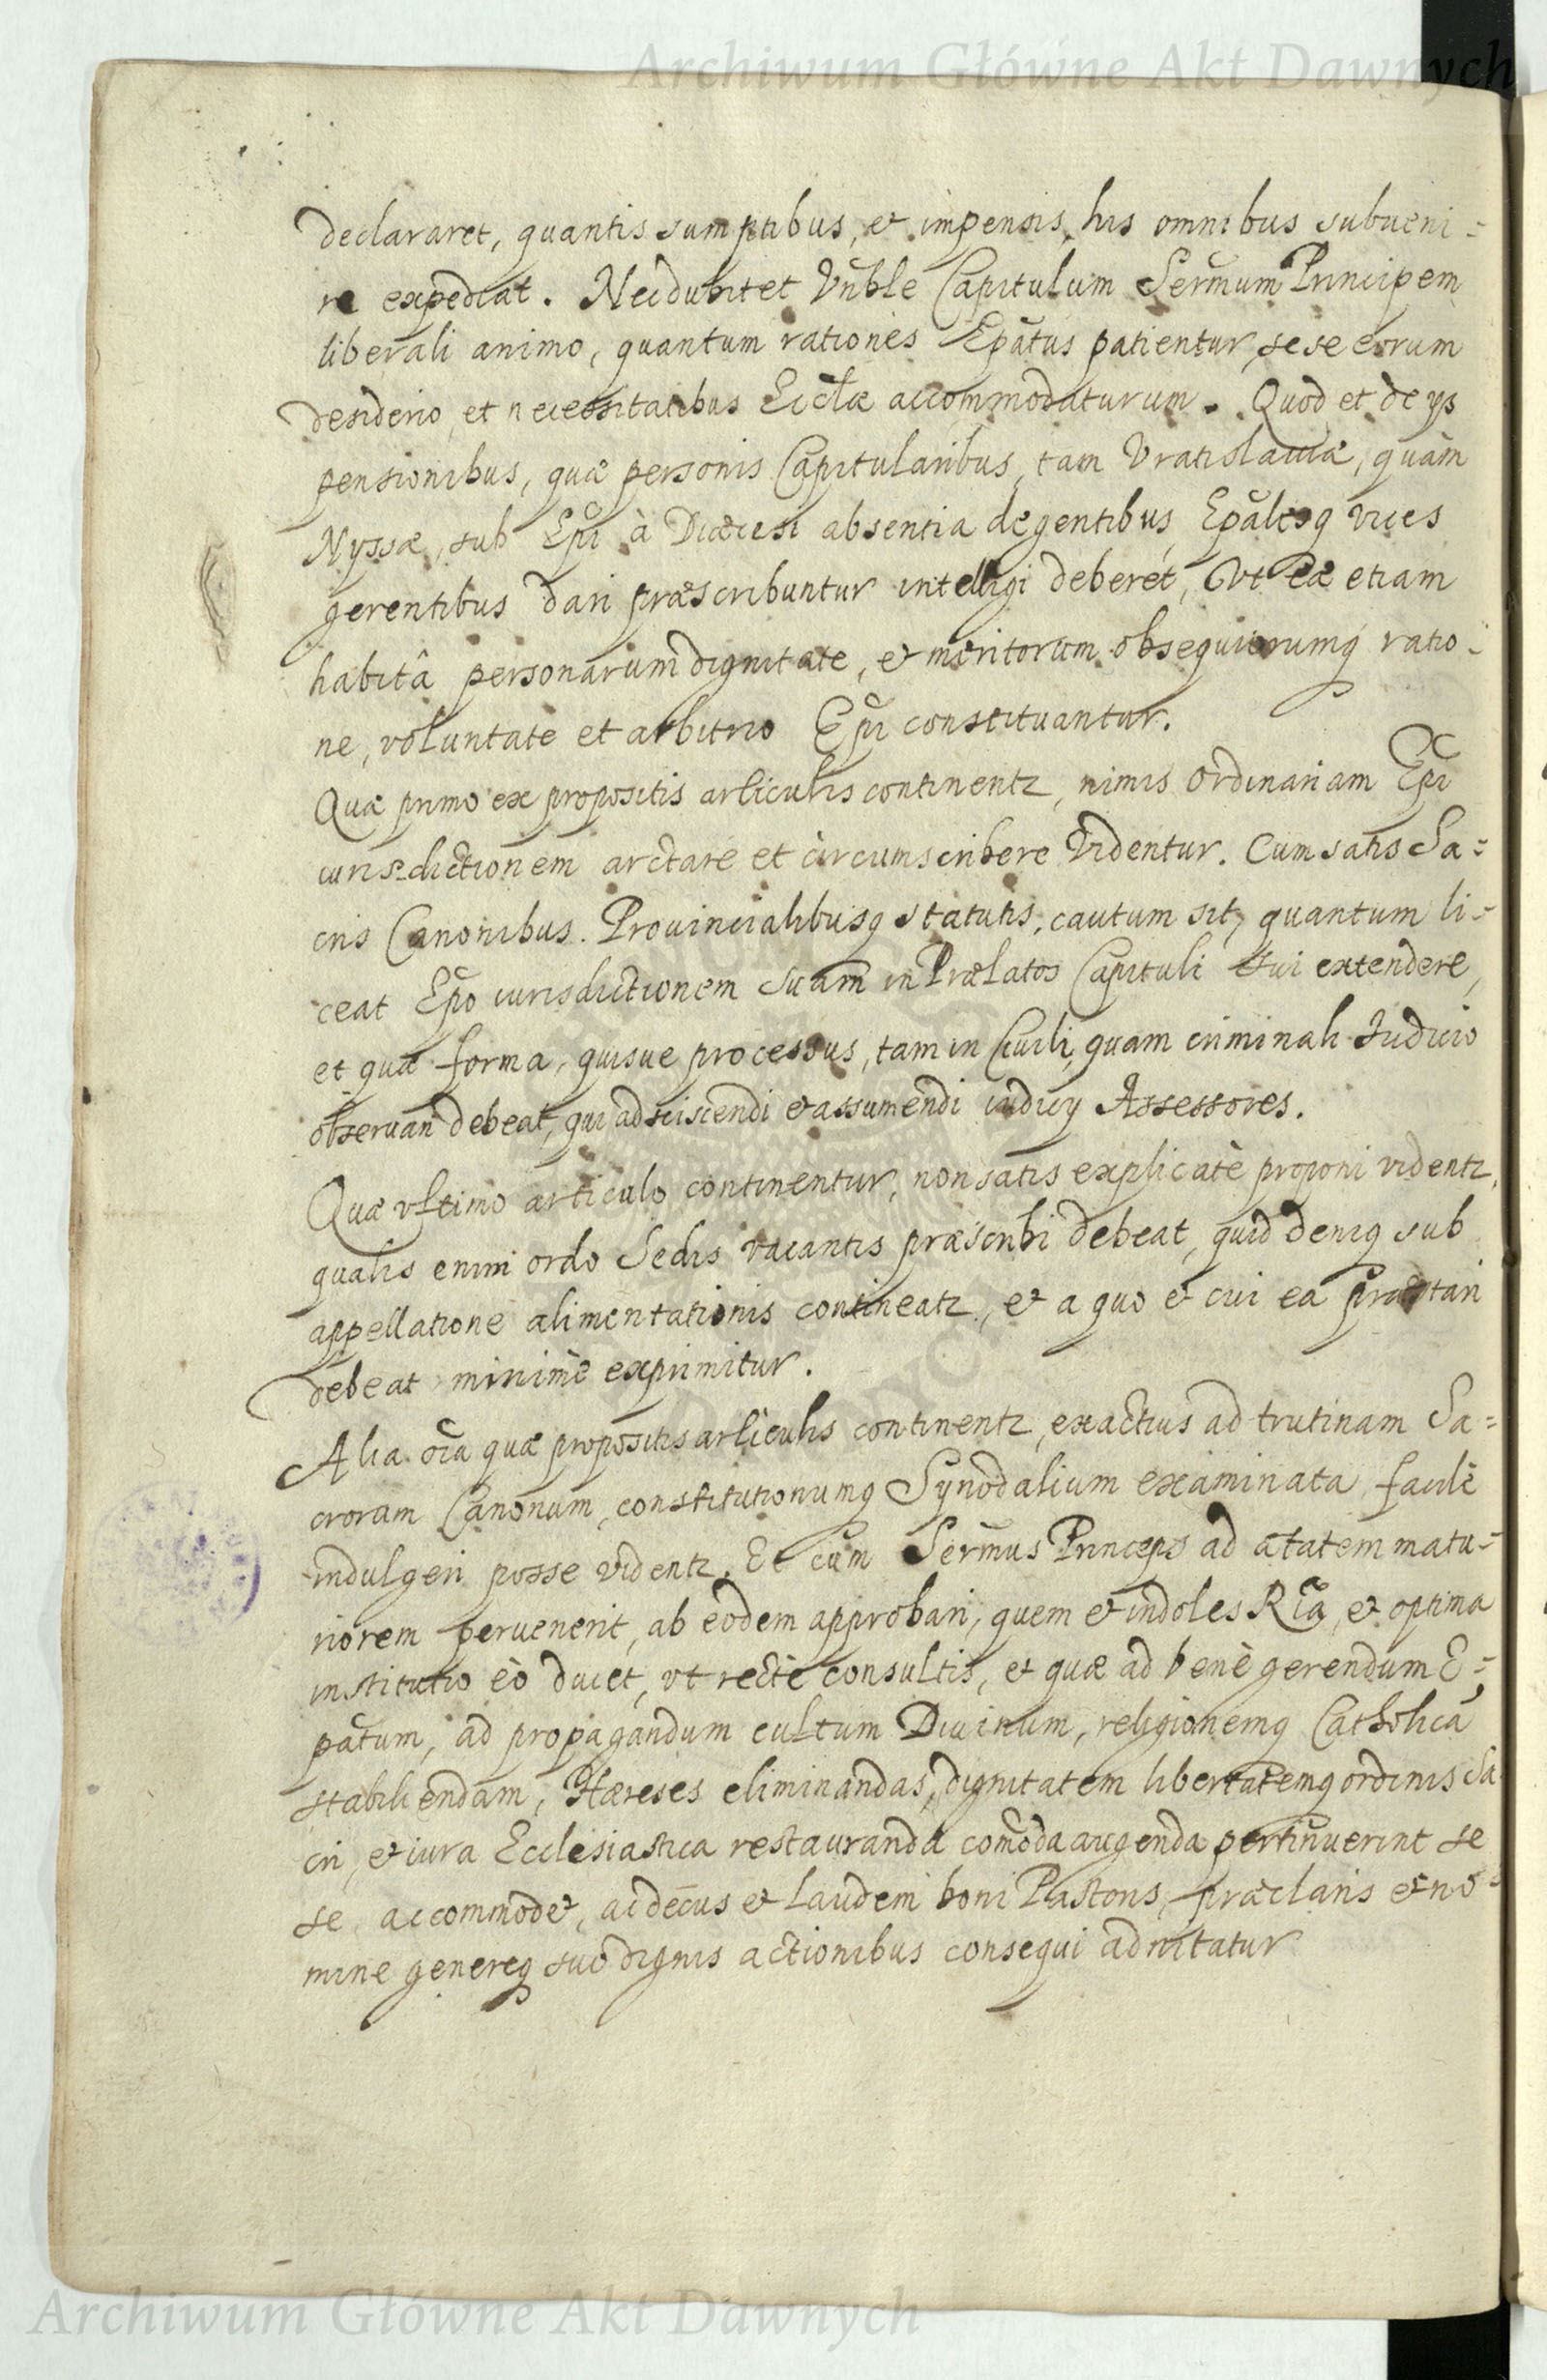 Archiwum Główne Akt Dawnych
declararet, quantis sumptibus, et impensis, his omnibus subueni=
re expediat. Nec dubitet Vn̄ble Capitulum Serm̄um Principem
liberali animo, quantum rationes Ep̄atus patientur, sese eorum
desiderio, et necessitatibus Eccl̄æ accommodaturum. Quod et de ys
pensionibus, quæ personis Capitularibus, tam Vratislauiæ, quàm
Nyssæ, sub Ep̄i à Diœcesi absentia degentibus, Ep̄alesq vices
gerentibus dari præscribuntur intelligi deberet, Vt eæ etiam
habitâ personarum dignitate, et meritorum obsequiorumq ratio-
ne, voluntate et arbitrio Ep̄i constituantur.
Quæ primo ex propositis articulis continentz, nimis ordinariam Ep̄i
iurisdictionem arctare et circumscribere videntur. Cum satis Sa=
cris Canonibus. Prouincialibusq statutis, cautum sit, quantum li=
ceat Ep̄o iurisdictionem suam in Prælatos Capituli sui extendere,
et quæ forma, quisue processus, tam in Ciuili, quam criminali Iudicio
obseruari debeat, qui adsciscendi et assumendi iudicy Assessores.
Quæ vltimo articulo continentur, non satis explicatè proponi videntz,
qualis enim ordo Sedis vacantis præscribi debeat, quid deniq sub
appellatione alimentationis contineatz, et a quo et cui ea præstari
debeat minimè exprimitur.
Alia oīa quæ propositis articulis continentz, exactius ad trutinam Sa=
crorum Canonum, constitutionumq Synodalium examinata, facilè
indulgeri posse videntz. Et cum Serm̄us Princeps ad ætatem matu=
riorem peruenerit, ab eodem approbari, quem et indoles R̄ia, et optima
institutio eò ducet, vt rectè consultis, et quæ ad benè gerendum E=
p̄atum, ad propagandum cultum Diuinum, religionemq Catholicā
stabiliendam, Hæreses eliminandas, dignitatem libertatemq ordinis Sa
cri, et iura Ecclesiastica restauranda com̄oda augenda pertinuerint se
se accommodet, ac decus et laudem boni Pastoris, præclaris et no=
mine genereq suo dignis actionibus consequi adnitatur
Archiwum Główne Akt Dawnych